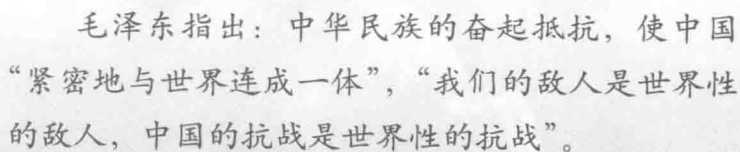 毛泽东指出：中华民族的奋起抵抗，使中国
“紧密地与世界连成一体”，“我们的敌人是世界性
的敌人，中国的抗战是世界性的抗战”。